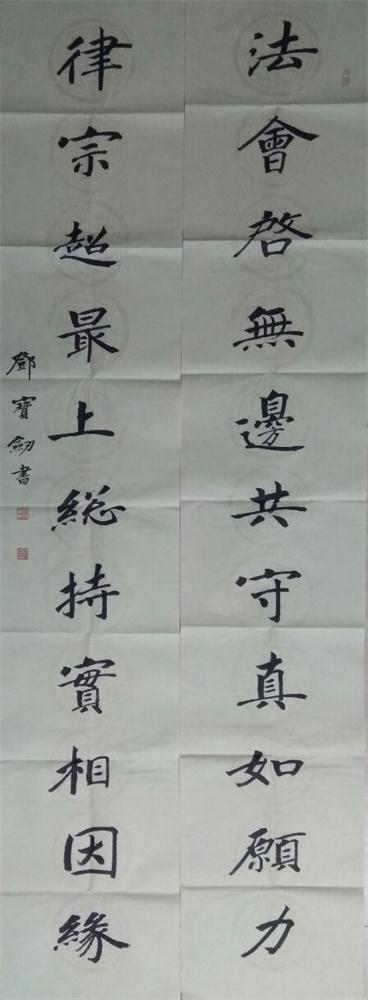 法會啓無邊共守真如願力
律宗超最上総持實相因緣
鄧寶劒書